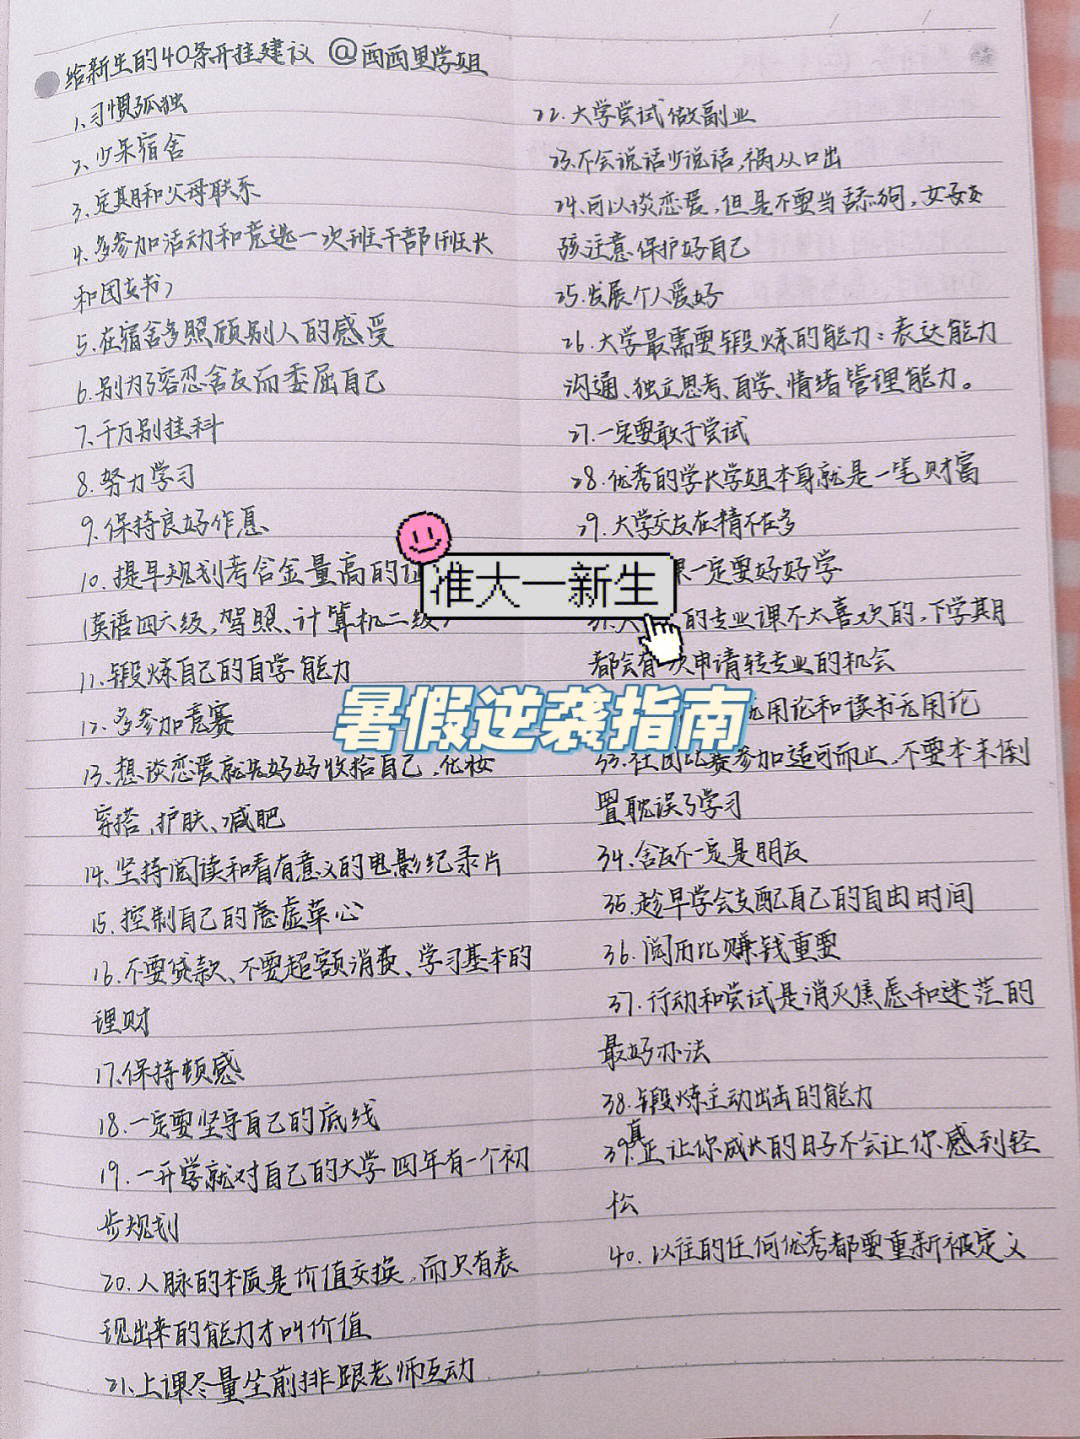 给新生的40条开挂建议 @西西里学姐
1.习惯孤独
2.少呆宿舍
3.定期和父母联系
4.多参加活动和竞选一次班干部(班长
和团支书)
5.在宿舍多照顾别人的感受
6.别为了容忍舍友而委屈自己
7.千万别挂科
8.努力学习
9.保持良好作息
10.提早规划考含金量高的证
(英语四六级,驾照、计算机二级)
11.锻炼自己的自学能力
12.多参加竞赛
13.想谈恋爱就先好好收拾自己,化妆
穿搭、护肤、减肥
14.坚持阅读和看有意义的电影纪录片
15.控制自己的虚荣心
16.不要贷款、不要超额消费、学习基本的
理财
17.保持顿感
18.一定要坚守自己的底线
19.一开学就对自己的大学四年有一个初
步规划
20.人脉的本质是价值交换,而只有表
现出来的能力才叫价值
21.上课尽量坐前排跟老师互动
22.大学尝试做副业
23.不会说话少说话,祸从口出
24.可以谈恋爱,但是不要当舔狗,女孩
孩注意保护好自己
25.发展个人爱好
26.大学最需要锻炼的能力:表达能力
沟通、独立思考、自学、情绪管理能力。
27.一定要敢于尝试
28.优秀的学长学姐本身就是一笔财富
29.大学交友在精不在多
课一定要好好学
的专业课不太喜欢的,下学期
都会有一次申请转专业的机会
无用论和读书无用论
33.社团比赛参加适可而止,不要本末倒
置耽误了学习
34.舍友不一定是朋友
35.趁早学会支配自己的自由时间
36.阅历比赚钱重要
37.行动和尝试是消灭焦虑和迷茫的
最好办法
38.锻炼主动出击的能力
39.真正让你成长的日子不会让你感到轻
松
40.以往的任何优秀都要重新被定义
准大一新生
暑假逆袭指南